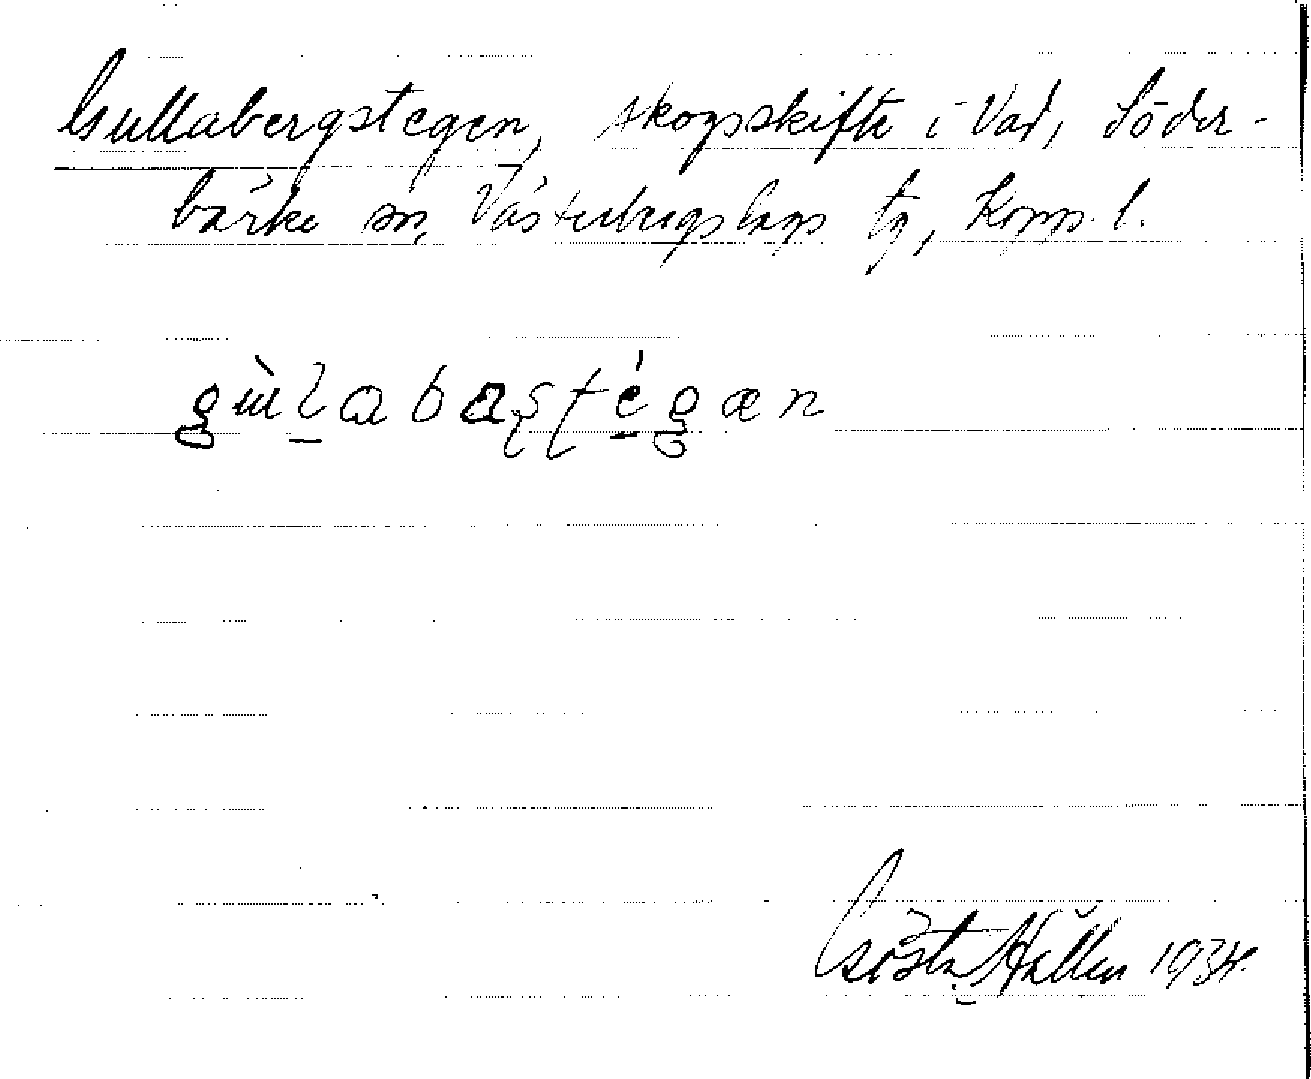 Gullabergstegen, skogsskifte i Vad, Söder-
bärke sn, Västerbergslags tg, Kopp. l.
gùlabaștégæn
Gösta Hallen 1934.